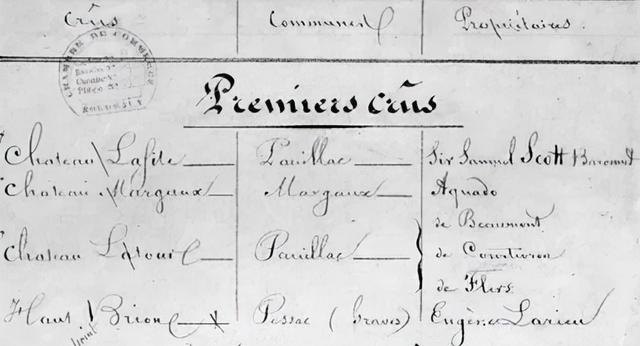 Crûs Communes Propriétaires.
CHAMBRE DE COMMERCE
BORDEAUX
Premiers crûs
Chateau Lafite Pauillac Sir Samuel Scott Baronnet
Chateau Margaux Margaux Aguado
de Beaumont
Chateau Latour Pauillac de Courtivron
de Flers
Haut Brion Pessac (Graves) Eugène Larieu